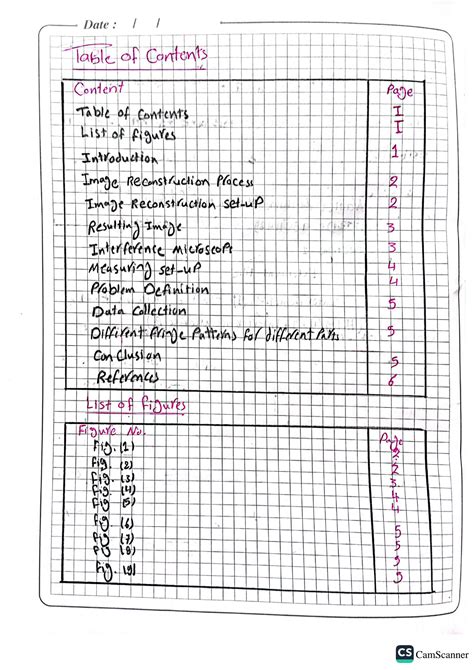 Date : / /
Table of Contents
Content Page
Table of Contents I
List of figures I
Introduction 1
Image Reconstruction Process 2
Image Reconstruction set-up 2
Resulting Image 3
Interference Microscope 3
Measuring set-up 4
Problem Definition 4
Data Collection 5
Different fringe Patterns for different Parts 5
Conclusion 5
References 6
List of figures
Figure No. Page
Fig. (1) 2
Fig. (2) 2
Fig. (3) 3
Fig. (4) 4
Fig (5) 4
Fig (6) 5
Fig (7) 5
Fig (8) 5
Fig. (9) 5
CS CamScanner